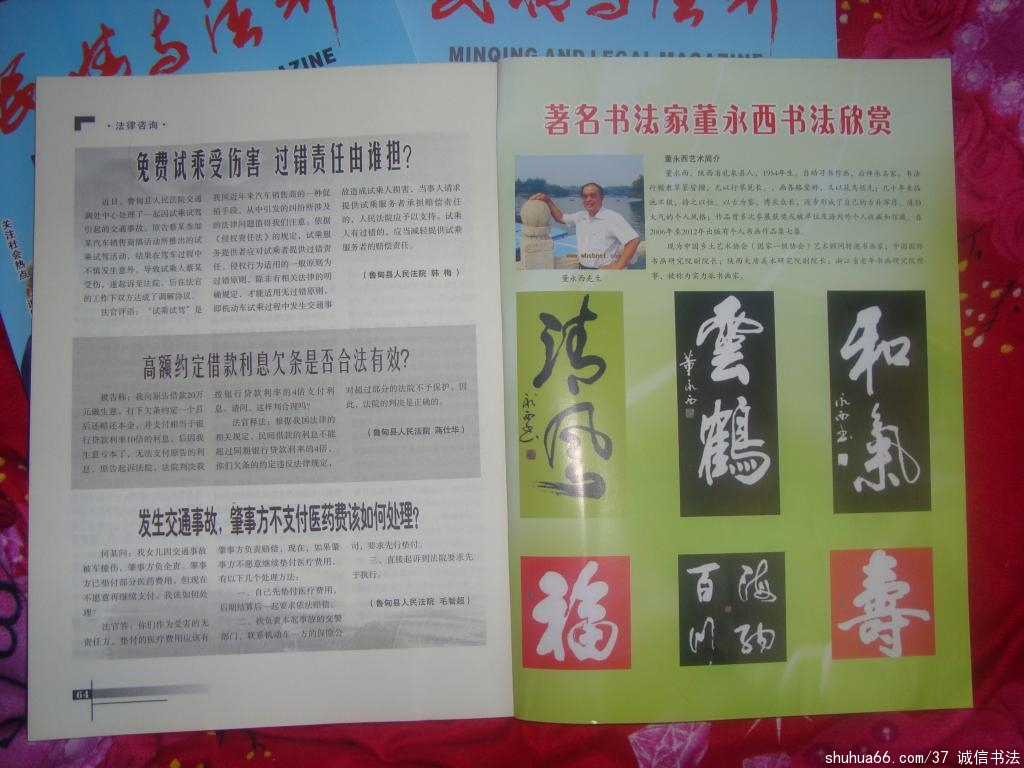 民情与法制
民情与法制
MAGAZINE
MINQING AND LEGAL MAGAZINE
关注社会热点
·法律咨询·
免费试乘受伤害 过错责任由谁担?
近日,鲁甸县人民法院交通
调处中心处理了一起因试乘试驾
引起的交通事故。原告蔡某参加
某汽车销售商搞活动所推出的试
乘试驾活动,结果在驾车过程中
不慎发生意外,导致试乘人蔡某
受伤,遂起诉至法院。后在法官
的工作下双方达成了调解协议。
法官评语:“试乘试驾”是
我国近年来汽车销售商的一种促
销手段,从中引发的纠纷所涉及
的法律问题值得我们注意。依据
《侵权责任法》的规定,试乘服
务提供者应对试乘者提供过错责
任。侵权行为适用的一般原则为
过错原则,除非有相关法律的明
确规定,才能适用无过错原则。
即机动车试乘过程中发生交通事
故造成试乘人损害,当事人请求
提供试乘服务者承担赔偿责任
的,人民法院应予以支持。试乘
人有过错的,应当减轻提供试乘
服务者的赔偿责任。
(鲁甸县人民法院 韩 梅)
高额约定借款利息欠条是否合法有效?
被告称:我向原告借款20万
元做生意,打下欠条约定一个月
后还赔还本金,并支付相当于银
行贷款利率10倍的利息。后因我
生意亏本了,无法支付原告的利
息,原告起诉法院,法院判决我
按银行贷款利率的4倍支付利
息。请问,这样判合理吗?
法官释法:根据我国法律的
相关规定,民间借款的利息不能
超过同期银行贷款利率的4倍,
你们欠条的约定违反法律规定,
对超过部分的法院不予保护。因
此,法院的判决是正确的。
(鲁甸县人民法院 蒋仕华)
发生交通事故,肇事方不支付医药费该如何处理?
何某问:我女儿因交通事故
被车撞伤,肇事方负全责。肇事
方已垫付部分医药费用,但现在
不愿意再继续支付。我该如何处
理?
法官答:你们作为受害的无
责任方,垫付的医疗费用应该有
肇事方负责赔偿,现在,如果肇
事方不愿意继续垫付医疗费用,
有以下几个处理方法:
一、自己先垫付医疗费用,
后期结算后一起要求依法赔偿。
二、找负责本起事故的交警
部门,联系机动车一方的保险公
司,要求先行垫付。
三、直接起诉到法院要求先
予执行。
(鲁甸县人民法院 毛智超)
64
著名书法家董永西书法欣赏
www.whsbnet.com
董永西先生
董永西艺术简介
董永西,陕西省礼泉县人,1954年生。自幼习书作画,后师承名家。书法
行楷隶草篆皆攉,尤以行草见长。
2006年至2012年出版有个人书画作品集七套。
现为中国乡土艺术协会(国家一级协会)艺术顾问特邀书画家;中国国际
书画研究院副院长;陕西大唐美术研究院副院长;浙江省老年书画研究院理
事,被称为实力派书画家。
清风
永西书
雲鹤
董永西
和氣
永西书
福
海纳
百川
壽
shuhua66.com/37 诚信书法